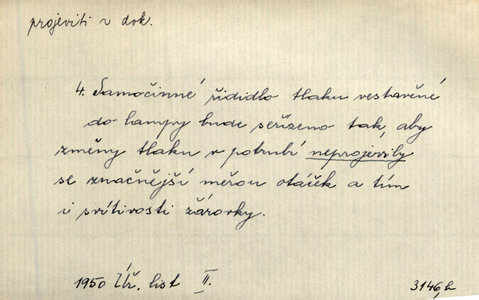 projeviti v dok.
4. Samočinné řididlo tlaku vestavěné
do lampy bude seřízeno tak, aby
změny tlaku v potrubí neprojevily
se značnější měrou otáček a tím
i svítivosti žárovky.
1950 Úř. list II.
3146,2